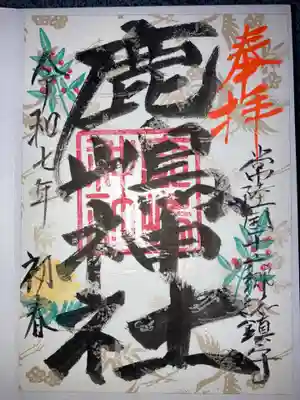 奉拝
常陸国
鎮守
鹿嶋神社
令和七年 初春